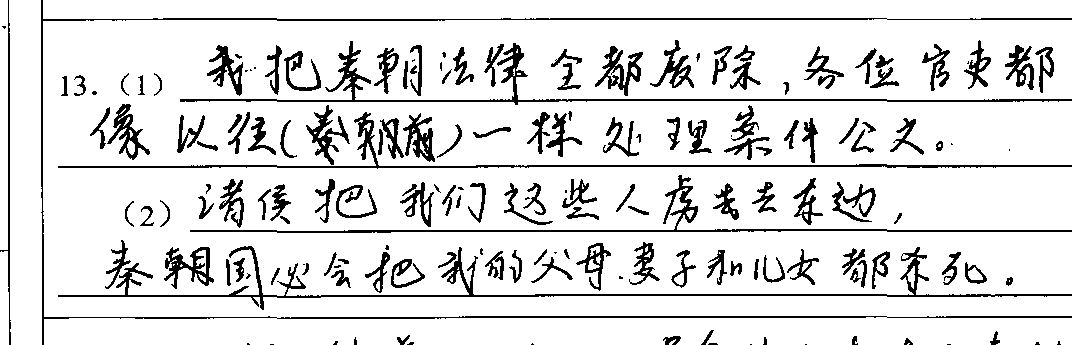 13.(1) 我把秦朝法律全都废除,各位官吏都
像以往(秦朝前)一样处理案件公文。
(2) 诸侯把我们这些人虏去去东边,
秦朝国必会把我的父母.妻子和儿女都杀死。